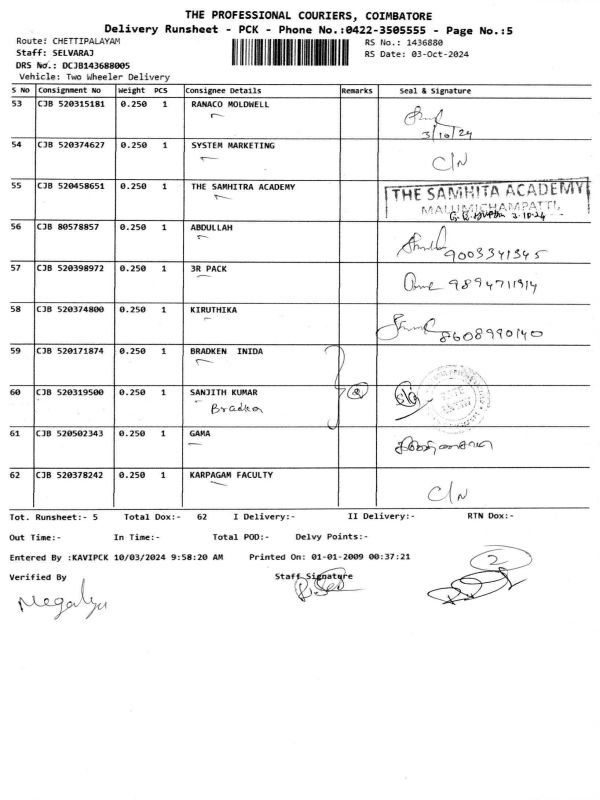 THE PROFESSIONAL COURIERS, COIMBATORE
Delivery Runsheet - PCK - Phone No.:0422-3505555 - Page No.:5
Route: CHETTIPALAYAM RS No.: 1436880
Staff: SELVARAJ RS Date: 03-Oct-2024
DRS No.: DCJB143688005
Vehicle: Two Wheeler Delivery
S No Consignment No Weight PCS Consignee Details Remarks Seal & Signature
53 CJB 520315181 0.250 1 RANACO MOLDWELL
3/10/24
54 CJB 520374627 0.250 1 SYSTEM MARKETING C/N
55 CJB 520458651 0.250 1 THE SAMHITRA ACADEMY THE SAMHITA ACADEMY
MALUMICHAMPATTI,
3.10.24
56 CJB 80578857 0.250 1 ABDULLAH
9003341345
57 CJB 520398972 0.250 1 3R PACK 9894711914
58 CJB 520374800 0.250 1 KIRUTHIKA
8608990140
59 CJB 520171874 0.250 1 BRADKEN INIDA
60 CJB 520319500 0.250 1 SANJITH KUMAR 2
Bradken
61 CJB 520502343 0.250 1 GAMA
62 CJB 520378242 0.250 1 KARPAGAM FACULTY
C/N
Tot. Runsheet:- 5 Total Dox:- 62 I Delivery:- II Delivery:- RTN Dox:-
Out Time:- In Time:- Total POD:- Delvy Points:-
Entered By :KAVIPCK 10/03/2024 9:58:20 AM Printed On: 01-01-2009 00:37:21
2
Verified By Staff Signature